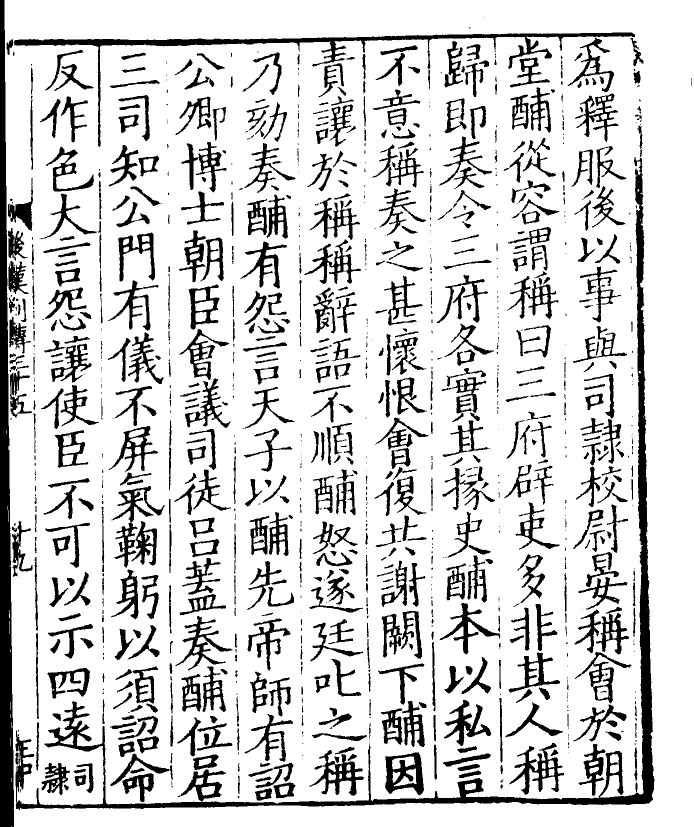 為釋服後以事與司隷校尉晏稱會於朝
堂酺從容謂稱曰三府辟吏多非其人稱
歸即奏令三府各實其掾史酺本以私言
不意稱奏之甚懷恨會復共謝闕下酺因
責讓於稱稱辭語不順酺怒遂廷叱之稱
乃劾奏酺有怨言天子以酺先帝師有詔
公卿博士朝臣會議司徒呂蓋奏酺位居
三司知公門有儀不屏氣鞠躬以須詔命
反作色大言怨讓使臣不可以示四遠司隷
後漢列傳三十五